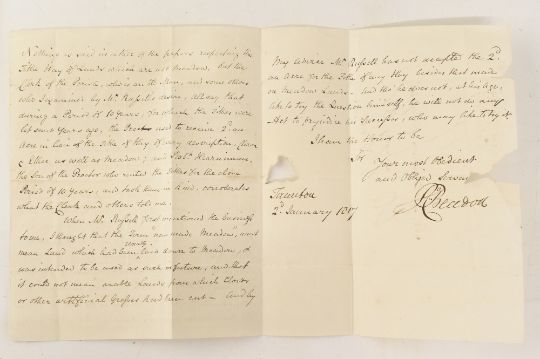 Nothing is said in either of the papers respecting the
Tithe Hay of Lands which are not meadow. But the
Clerk of the Parish, who is an old Man, and some others
who I examined by Mr. Russell's desire, all say that
during a Period of 10 years, for which the Tithes were
let some years ago, the Proctor used to receive 2d. an
Acre in lieu of the Tithe of Hay of every description, from
Clover as well as meadow; and
the Son of the Proctor who rented the Tithes for the above
Period of 10 years, and took them in kind, corroborates
what the Clerk and others told me.
When Mr. Russell first mentioned the business
to me, I thought that the Term "new made Meadow," must
mean Land which had been newly laid down to Meadow, &
was intended to be used as such in future, and that
it could not mean arable Lands from which Clover
or other artificial Grasses had been cut - And by
may advise Mr. Russell has not accepted the 2d.
an Acre for the Tithe of any Hay besides that made
on Meadow Lands. And tho' he does not, at his age,
like to try the Question himself, he will not do any
Act to prejudice his Successor, who may like to try it
I have the Honor to be
Sir
Your most Obedient
and Obliged Servant
Taunton
2d. January 1817